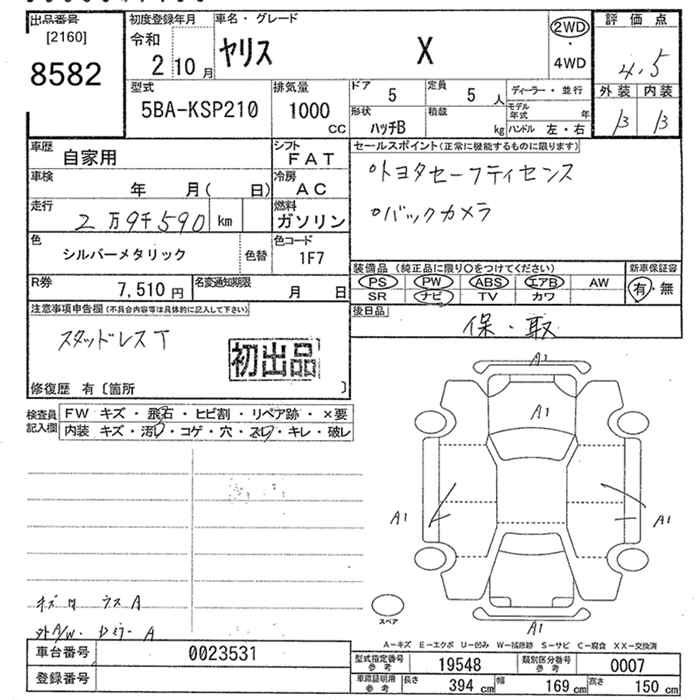 出品番号 [2160] 8582
初度登録年月 令和 2 10月
車名・グレード ヤリス X
2WD・4WD
評価点 4.5
外装 内装
B B
型式 5BA-KSP210
排気量 1000 cc
ドア 5
定員 5 人
形状 ハッチB
積載 kg
ディーラー・並行
モデル年式 年
ハンドル 左・右
車歴 自家用
シフト FAT
車検 年 月( 日)
冷房 AC
走行 2万9千590 km
燃料 ガソリン
色 シルバーメタリック
色替
色コード 1F7
R券 7,510円
名変通知期限 月 日
セールスポイント(正常に機能するものに限ります)
○トヨタセーフティセンス
○バックカメラ
装備品 (純正品に限り○をつけてください)
PS PW ABS エアB AW
SR ナビ TV カワ
新車保証書 有・無
後日品 保・取
注意事項申告欄(不具合内容等は具体的に記入して下さい)
スタッドレスT
初出品
修復歴 有〔箇所 〕
検査員記入欄
FW キズ・飛石・ヒビ割・リペア跡・×要
内装 キズ・汚れ・コゲ・穴・スレ・キレ・破レ
A1
A1
A1
A1
A1
スペア
A1
A-キズ E-エクボ U-凹み W-補修跡 S-サビ C-腐食 XX-交換済
車台番号 0023531
登録番号
型式指定番号 参考 19548
類別区分番号 参考 0007
車庫証明用 参考 長さ 394 cm 幅 169 cm 高さ 150 cm